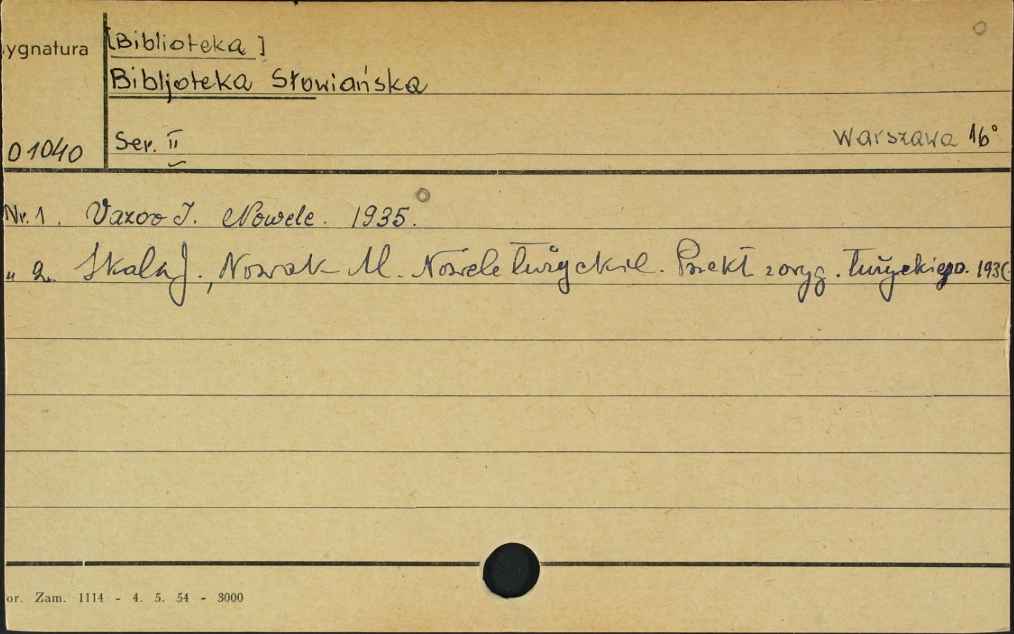 ygnatura
[Biblioteka]
Bibljoteka Słowiańska
01040
Ser. II
Warszawa 16°
Nr. 1. Vazov J. Nowele. 1935.
„ 2. Skala J., Nowak M. Nowele łużyckie. Przekł z oryg. łużyckiego. 193
or. Zam. 1114 - 4. 5. 54 - 3000